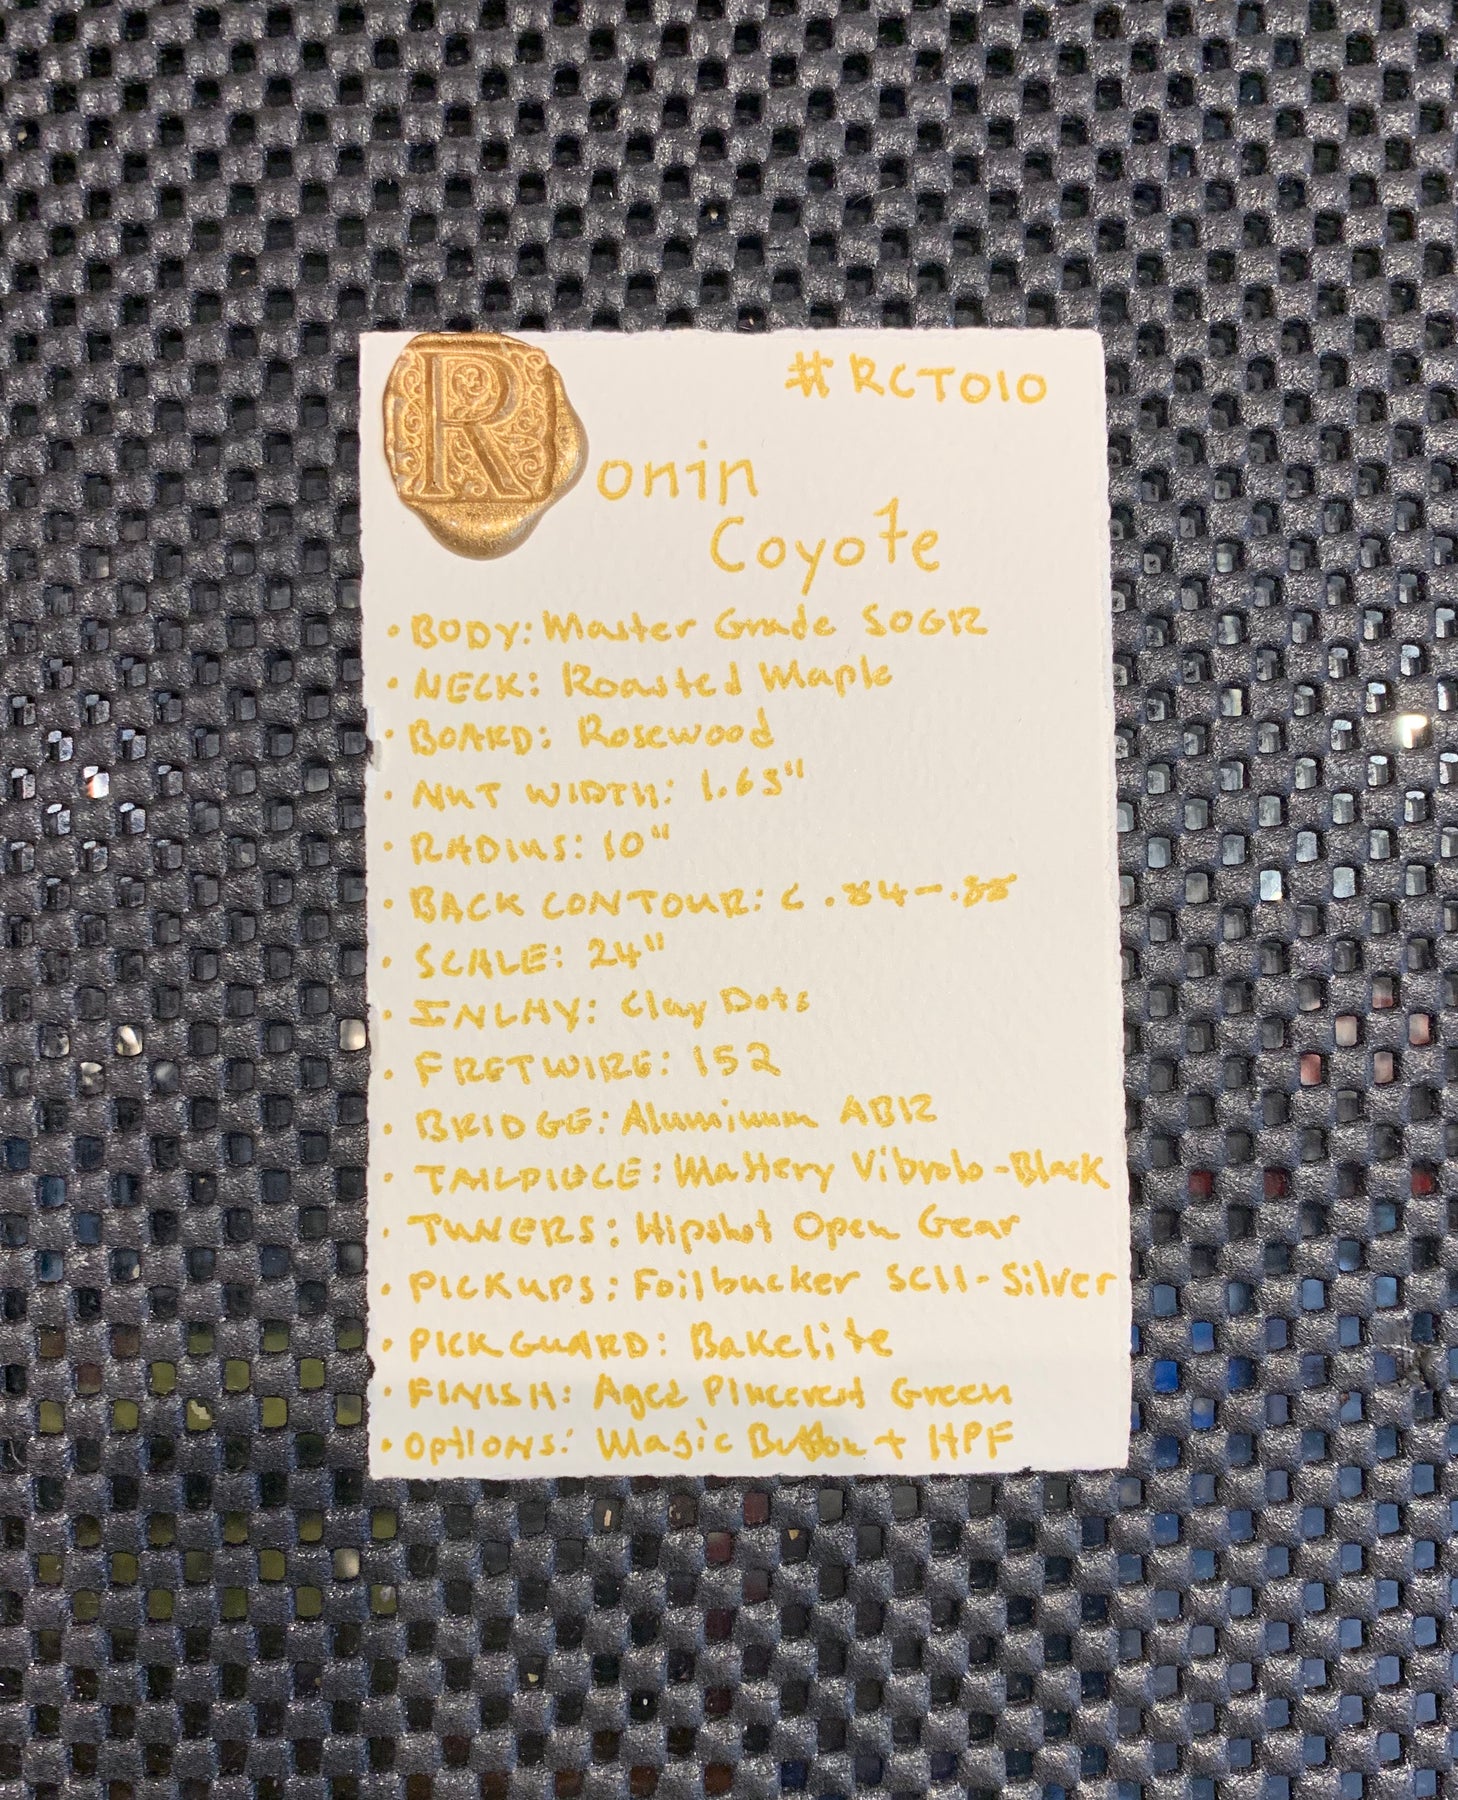 #RCT010
Ronin
Coyote
• BODY: Master Grade SOGR
• NECK: Roasted Maple
• BOARD: Rosewood
• NUT WIDTH: 1.65"
• RADIUS: 10"
• BACK CONTOUR: C .84-.88
• SCALE: 24"
• INLAY: Clay Dots
• FRETWIRE: 152
• BRIDGE: Aluminum ABR
• TAILPIECE: Mastery Vibrato-Black
• TUNERS: Hipshot Open Gear
• PICKUPS: Foilbucker SCII-Silver
• PICKGUARD: Bakelite
• FINISH: Aged Pinecrest Green
• OPTIONS: Magic Button + HPF